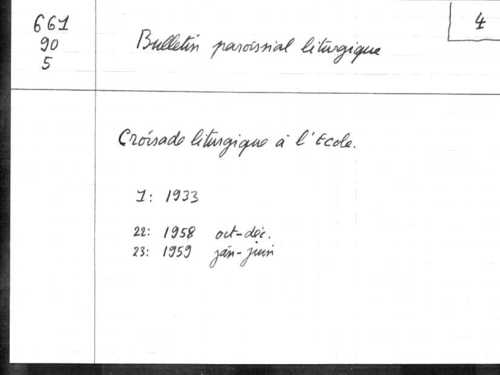 661
90
5
Bulletin paroissial liturgique
4
Croisade liturgique à l'Ecole.
1: 1933
22: 1958 oct-déc.
23: 1959 jan-juin